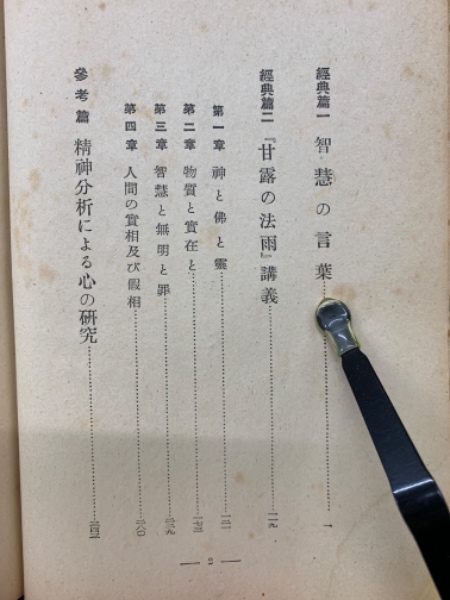 經典篇一 智慧の言葉 一
經典篇二 『甘露の法雨』講義 一一九
第一章 神と佛と靈 一二一
第二章 物質と實在と 一七三
第三章 智慧と無明と罪 二三九
第四章 人間の實相及び假相 二八〇
參考篇 精神分析による心の研究